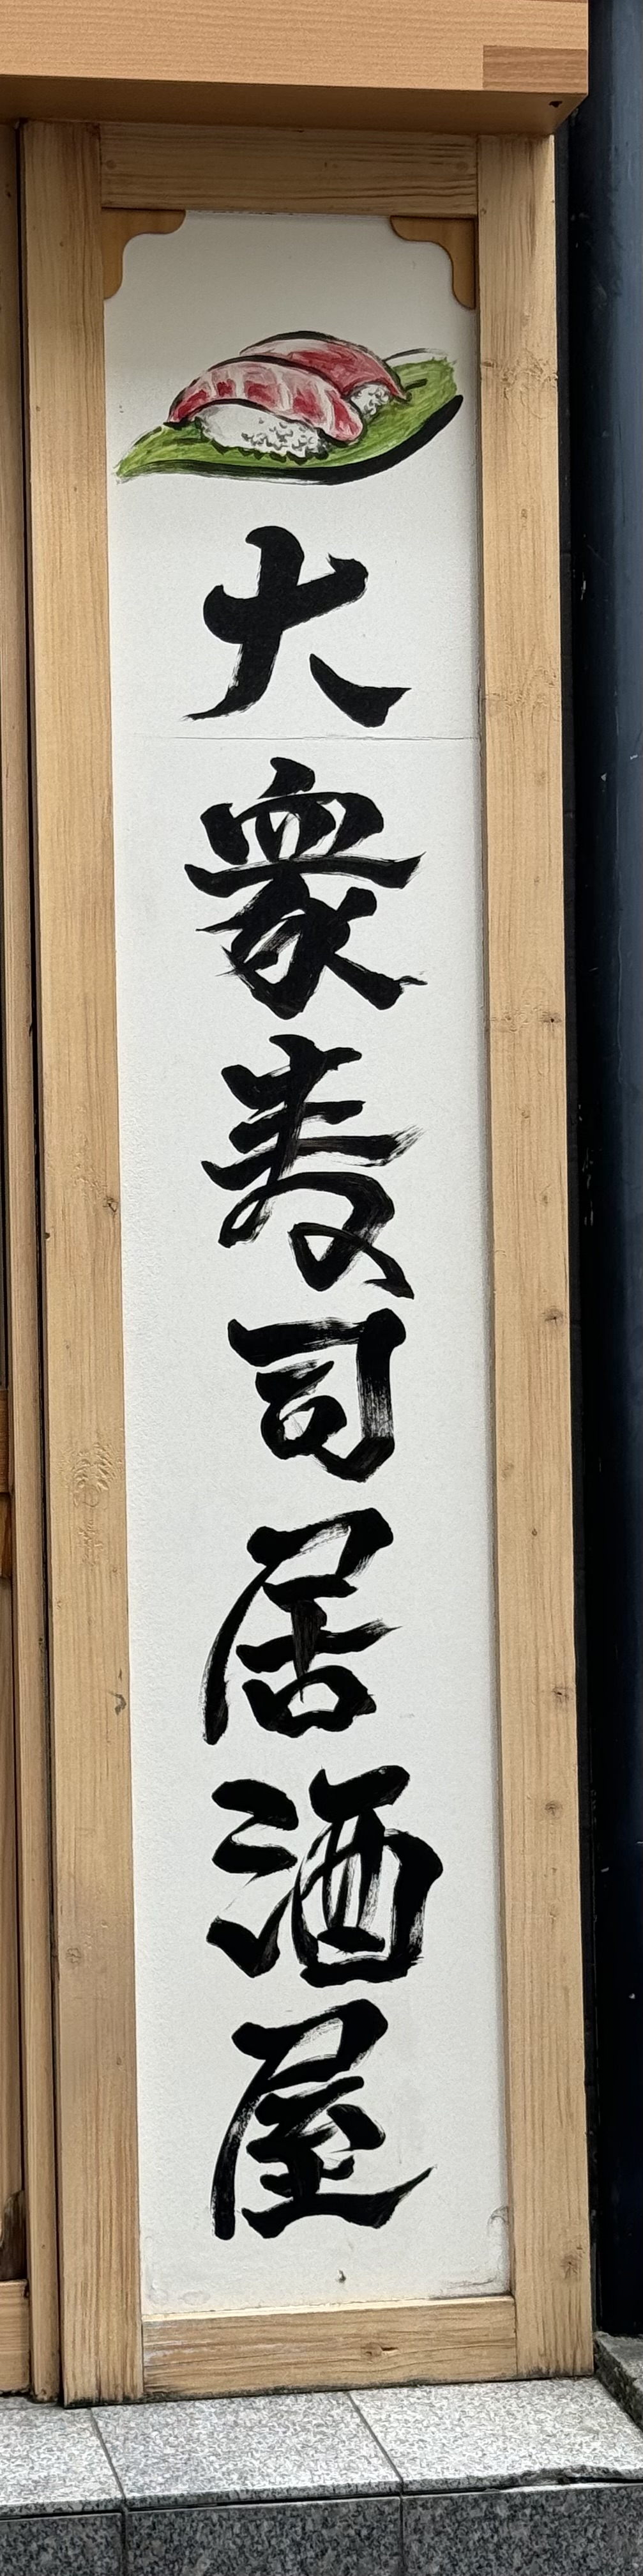 大衆寿司居酒屋